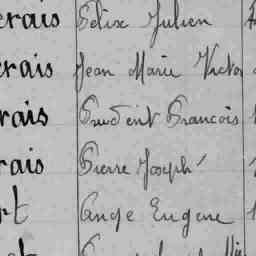 erais Félix Julien
erais Jean Marie Victor
rais Prudent Francois
rais Pierre Joseph
rt Ange Eugene